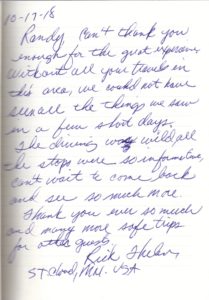 10-17-18
Randy Can't thank you
enough for the great experience
Without all your travels in
this area, we could not have
seen all the things we saw
in a few short days.
The driving w/ all
the stops were so informative,
can't wait to come back
and see so much more.
Thank you ever so much
and many more safe trips
for other guests,
Rick
St Cloud, MN. USA